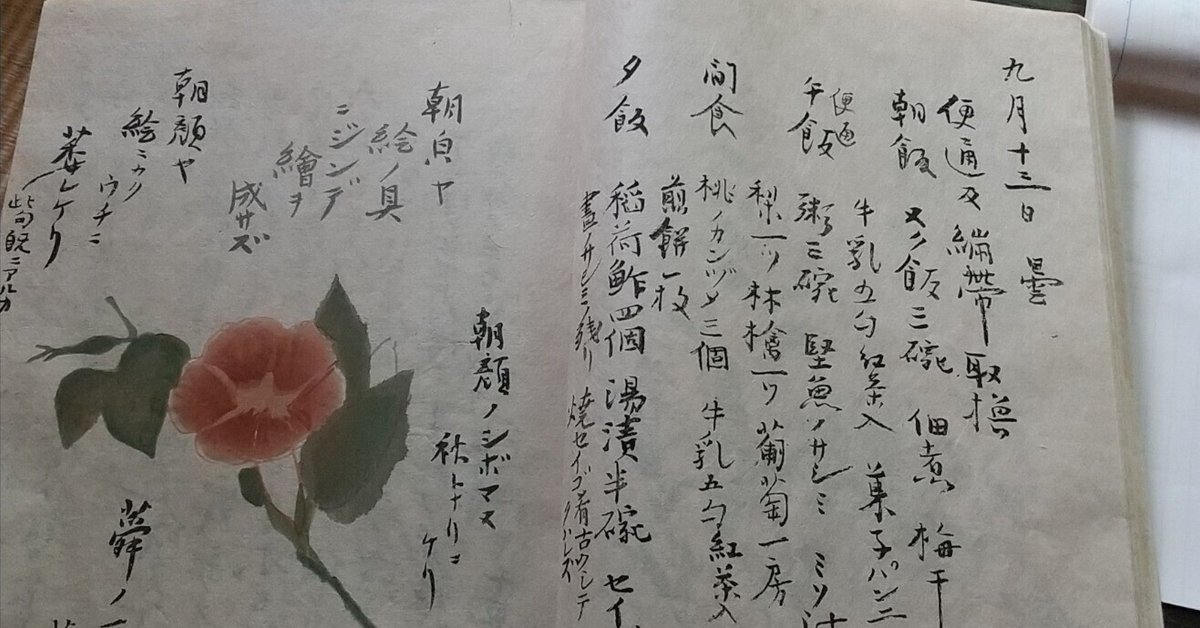 九月十三日 曇
便通及繃帯取換
朝飯 ヌク飯三碗 佃煮 梅干
牛乳五勺紅茶入 菓子パン二
便通
午飯 粥三碗 堅魚ノサシミ ミソ汁
梨一ツ 林檎一ツ 葡萄一房
間食 桃ノカンヅメ三個 牛乳五勺紅茶入
煎餅一枚
夕飯 稲荷鮓四個 湯漬半碗 セイ
晝ノサシミノ残リ 焼セイゴ肴古クシテクハレズ
朝皃ヤ
絵ノ具
ニジンデ
繪ヲ
成サズ
朝顔ノシボマヌ
秋トナリニ
ケリ
朝顔ヤ
絵ニカク
ウチニ
萎レケリ
此句既ニアルカ
蕣ノ一